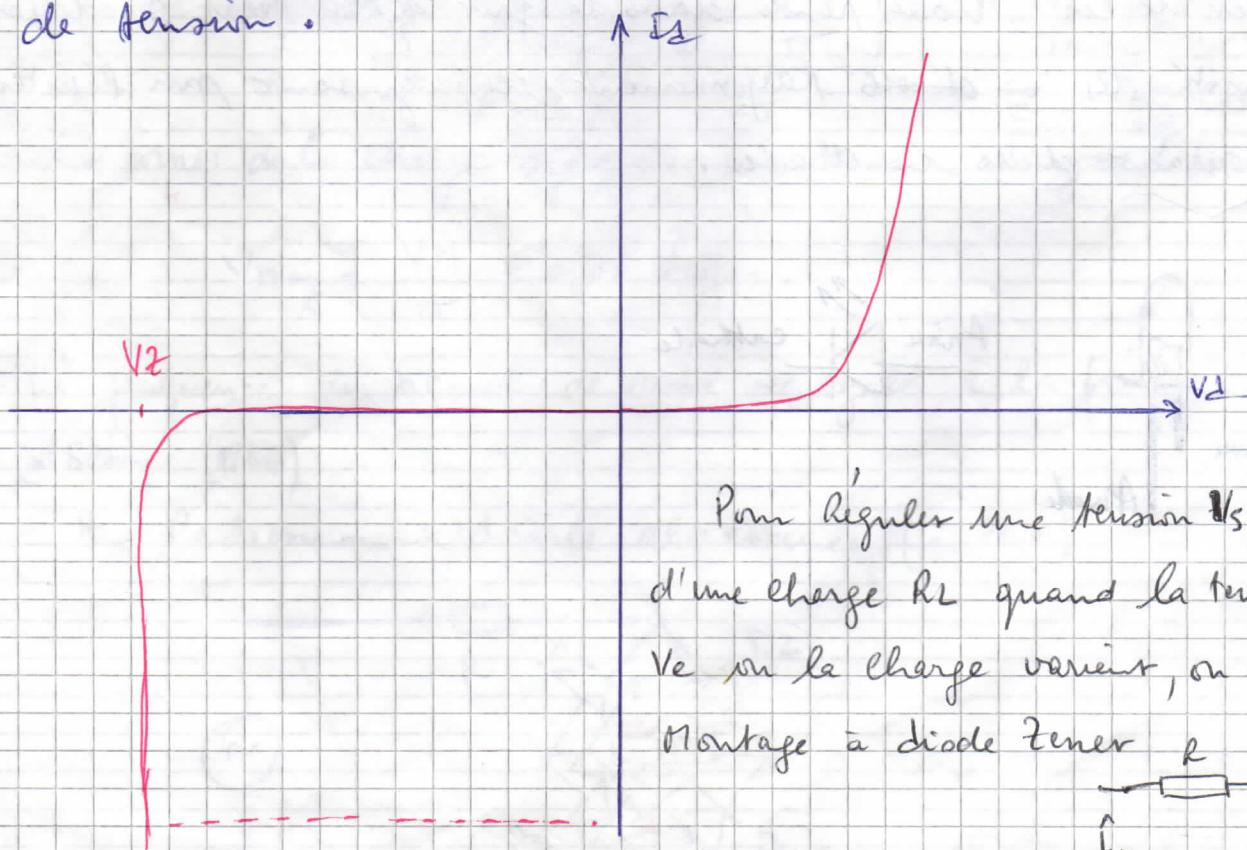 de tension.
Id
VZ
Vd
Pour Réguler une tension Vs
d'une charge RL quand la ten
Ve ou la charge varient, on
Montage à diode Zener
R